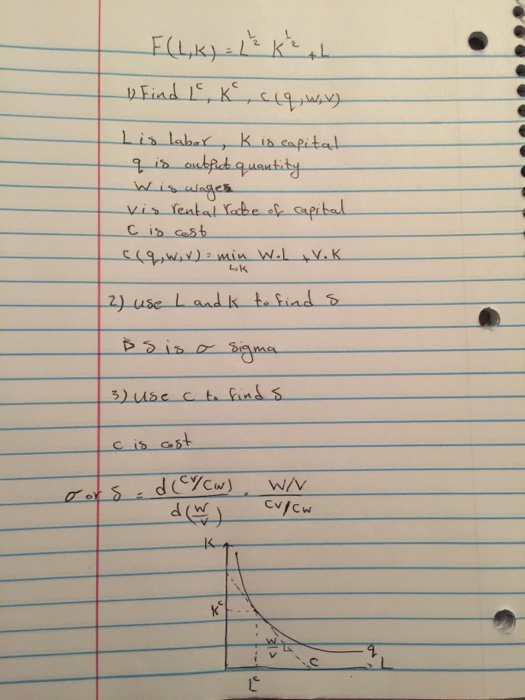 F(L,K) = L^½ K^½ + L
1) Find L^c, K^c, c(q,w,v)
L is labor, K is capital
q is output quantity
w is wages
v is rental rate of capital
C is cost
c(q,w,v) = min W.L + V.K
L,K
2) use L and K to find δ
δ is σ sigma
3) use c to find δ
c is cost
σ or δ = d(Cv/Cw) / d(w/v) . W/V / Cv/Cw
K
K^c
w/v
c
q
L
L^c